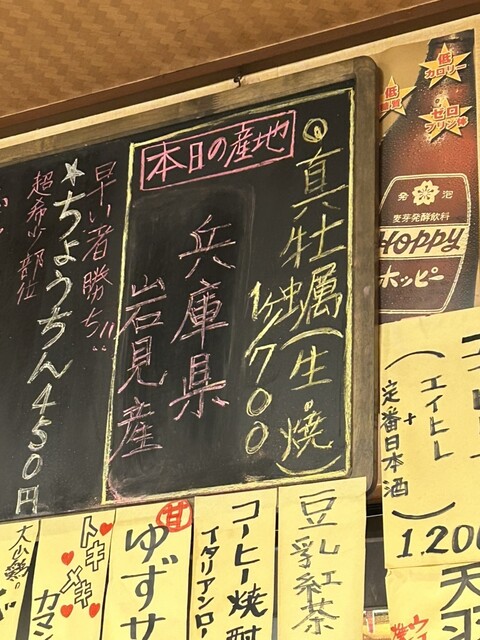 本日の産地
○真牡蠣(生・焼)
1ヶ700
兵庫県
岩見産
早い者勝ち!!
*ちょうちん450円
超希少部位
低
カロリー
低
ゼロ
プリン体
発泡
麦芽発酵飲料
HOPPY
ホッピー
エイヒレ
+
定番日本酒
1,200
豆乳紅茶
コーヒー焼酎
イタリアンロー
甘
ゆずサ
トキメキ
カマン